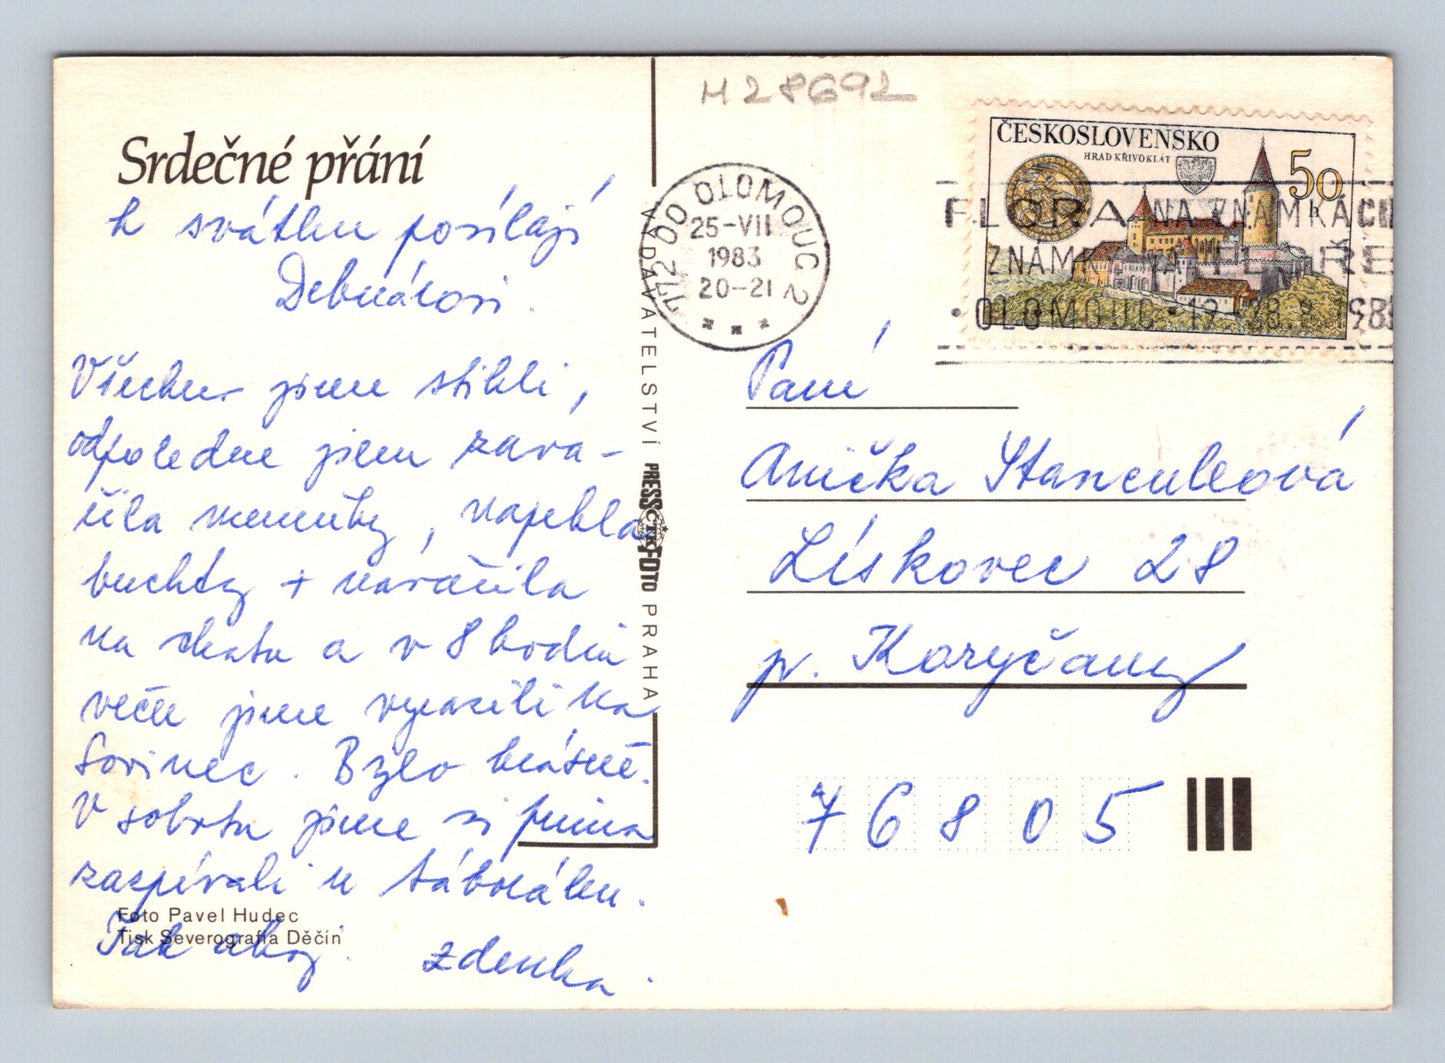 H 28692
Srdečné přání
k svátku posílají
Debnárovi.
Všechno jsme stihli,
odpoledne jsem zava-
řila meruňky, napekla
buchty + navařila
na chatu a v 8 hodin
večer jsme vyrazili na
Sovinec. Bylo krásně.
V sobotu jsme si prima
zazpívali u táboráku.
Tak ahoj. Zdenka.
Foto Pavel Hudec
Tisk Severografia Děčín
VYDAVATELSTVÍ PRESSFOTO PRAHA
ČTK
772 00 OLOMOUC 2
25-VII
1983
20-21
ČESKOSLOVENSKO
HRAD KŘIVOKLÁT
50 h
FLORA NA ZNÁMKÁCH
ZNÁMKY NA FLOŘE
OLOMOUC 19.-28.8.1983
Paní
Anička Stanculeová
Lískovec 28
p. Koryčany
76805